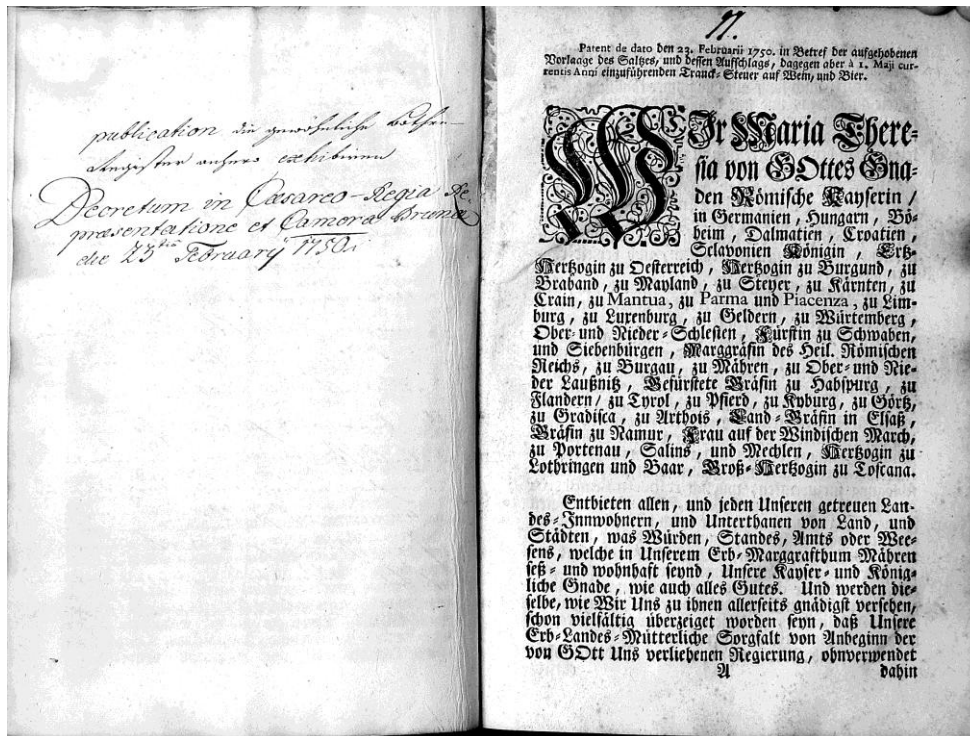 publication die gewöhnliche
Register anhero exhibiren
Decretum in Cæsareo-Regia Re
præsentatione et Camera Brunæ
die 23tia February 1750.
Patent de dato den 23. Februarii 1750. in Betref der aufgehobenen
Vorlaage des Saltzes, und dessen Aufschlags, dagegen aber à 1. Maji cur-
rentis Anni einzuführenden Tranck-Steuer auf Wein, und Bier.
WJr Maria There-
sia von GOttes Gna-
den Römische Kayserin /
in Germanien, Hungarn, Bö-
heim, Dalmatien, Croatien,
Sclavonien Königin, Ertz-
Hertzogin zu Oesterreich, Hertzogin zu Burgund, zu
Braband, zu Mayland, zu Steyer, zu Kärnten, zu
Crain, zu Mantua, zu Parma und Piacenza, zu Lim-
burg, zu Luxenburg, zu Geldern, zu Würtemberg,
Ober- und Nieder-Schlesien, Fürstin zu Schwaben,
und Siebenbürgen, Marggräfin des Heil. Römischen
Reichs, zu Burgau, zu Mähren, zu Ober- und Nie-
der Laußnitz, Gefürstete Gräfin zu Habspurg, zu
Flandern / zu Tyrol, zu Pfierd, zu Kyburg, zu Görtz,
zu Gradisca, zu Arthois, Land-Gräfin in Elsaß,
Gräfin zu Namur, Frau auf der Windischen March,
zu Portenau, Salins, und Mechlen, Hertzogin zu
Lothringen und Baar, Groß-Hertzogin zu Toscana.
Entbieten allen, und jeden Unseren getreuen Lan-
des-Innwohnern, und Unterthanen von Land, und
Städten, was Würden, Standes, Amts oder Wee-
sens, welche in Unserem Erb-Marggrafthum Mähren
seß- und wohnhaft seynd, Unsere Kayser- und König-
liche Gnade, wie auch alles Gutes. Und werden die-
selbe, wie Wir Uns zu ihnen allerseits gnädigst versehen,
schon vielfältig überzeiget worden seyn, daß Unsere
Erb-Landes-Mütterliche Sorgfalt von Anbeginn der
von GOtt Uns verliehenen Regierung, ohnverwendet
A dahin